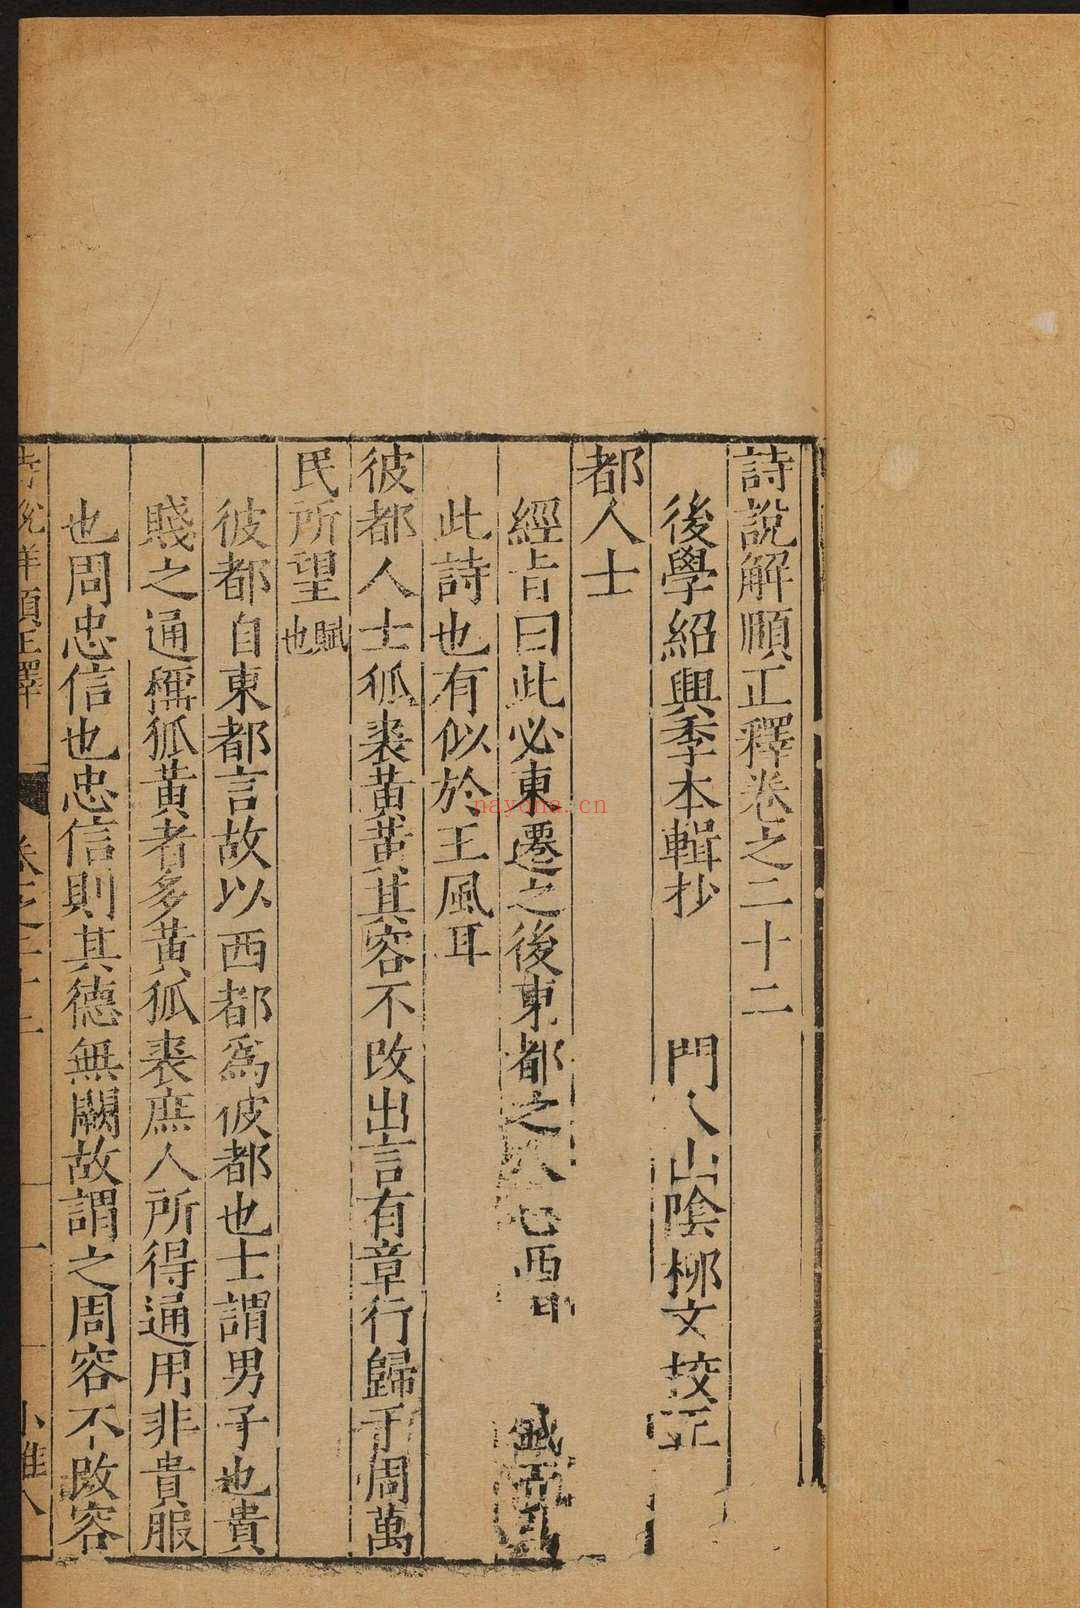 詩說解頤正釋卷之二十二
後學紹興季本輯抄 門人山隂栁文校正
都人士
經旨曰此必東遷之後東都之人 西
此詩也有似於王風耳
彼都人士狐裘黃黃其容不改出言有章行歸于周萬
民所望賦也
彼都自東都言故以西都爲彼都也士謂男子也貴
賤之通稱狐黃者多黃狐裘庶人所得通用非貴服
也周忠信也忠信則其德無闕故謂之周容不改容
詩說解頤正釋 卷之二十二 一 小雅八
nayona.cn